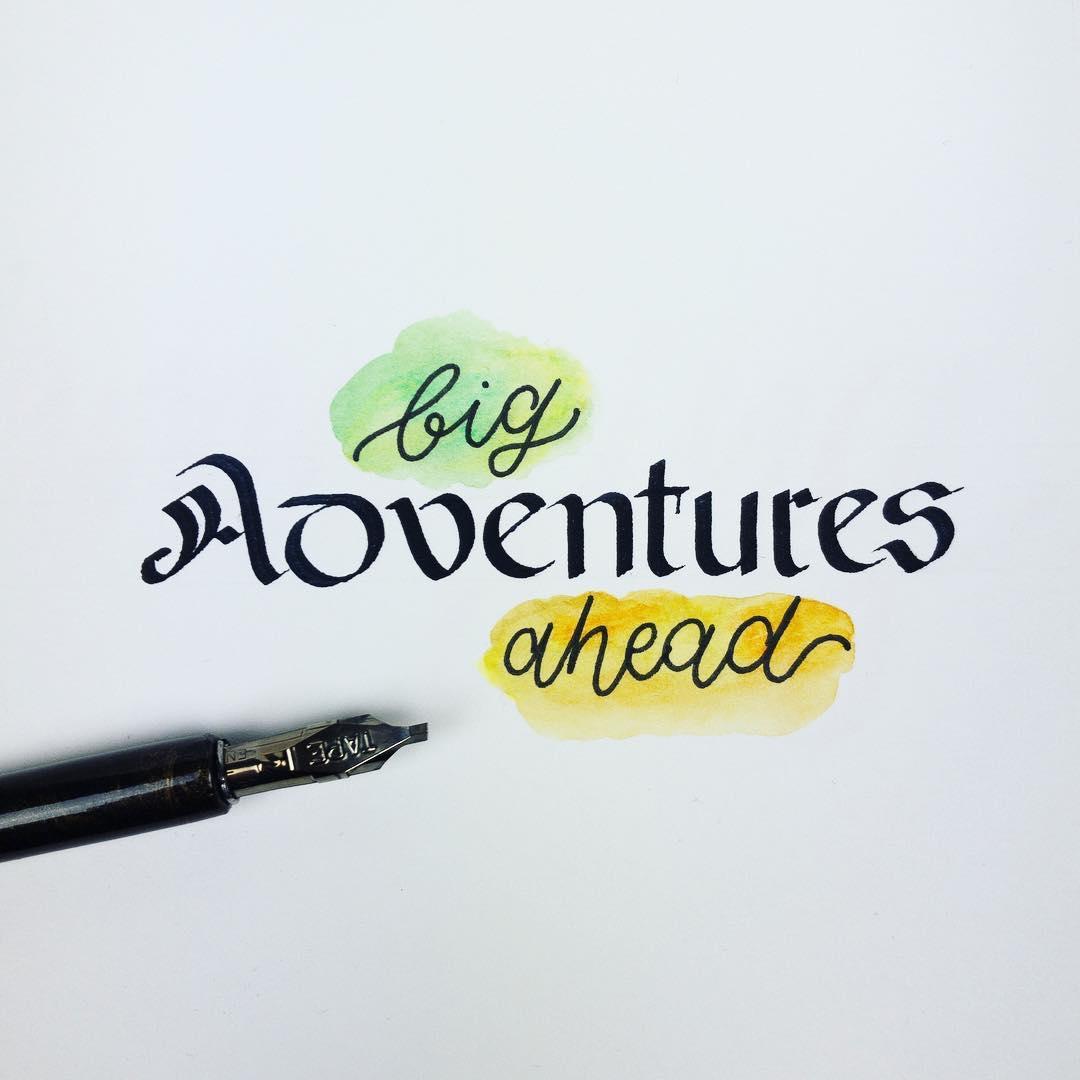 big
Adventures
ahead
TAPE